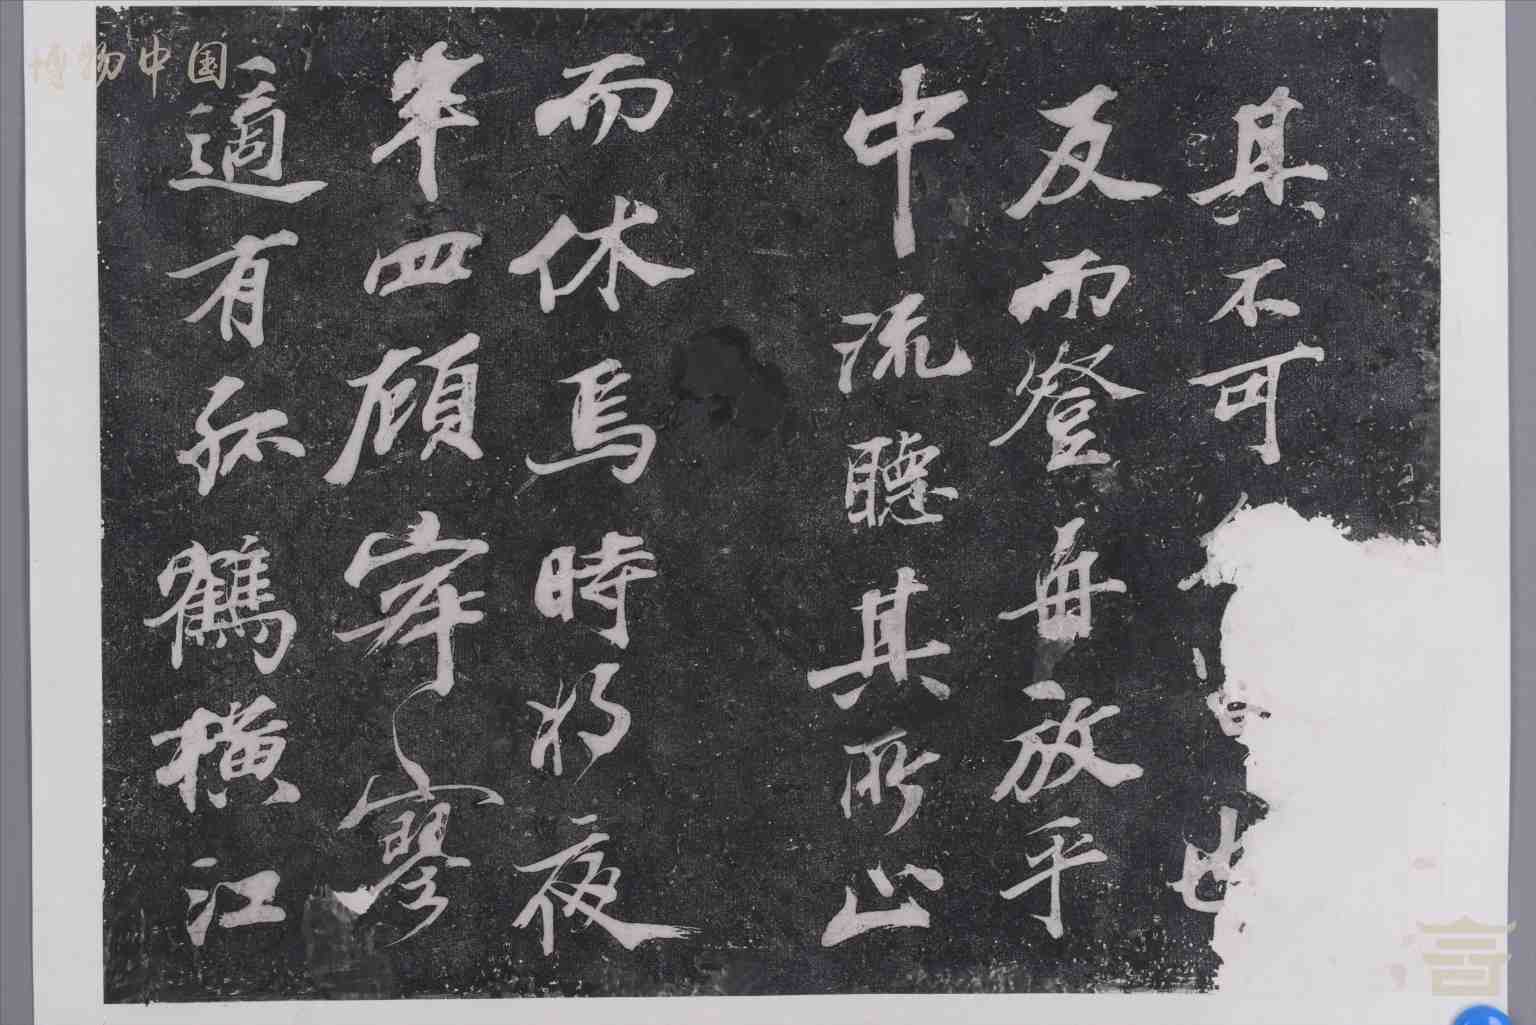 其不可留也
反而登舟放乎
中流聽其所止
而休焉時將夜
半四顧寂寥
適有孤鶴橫江
博物中国